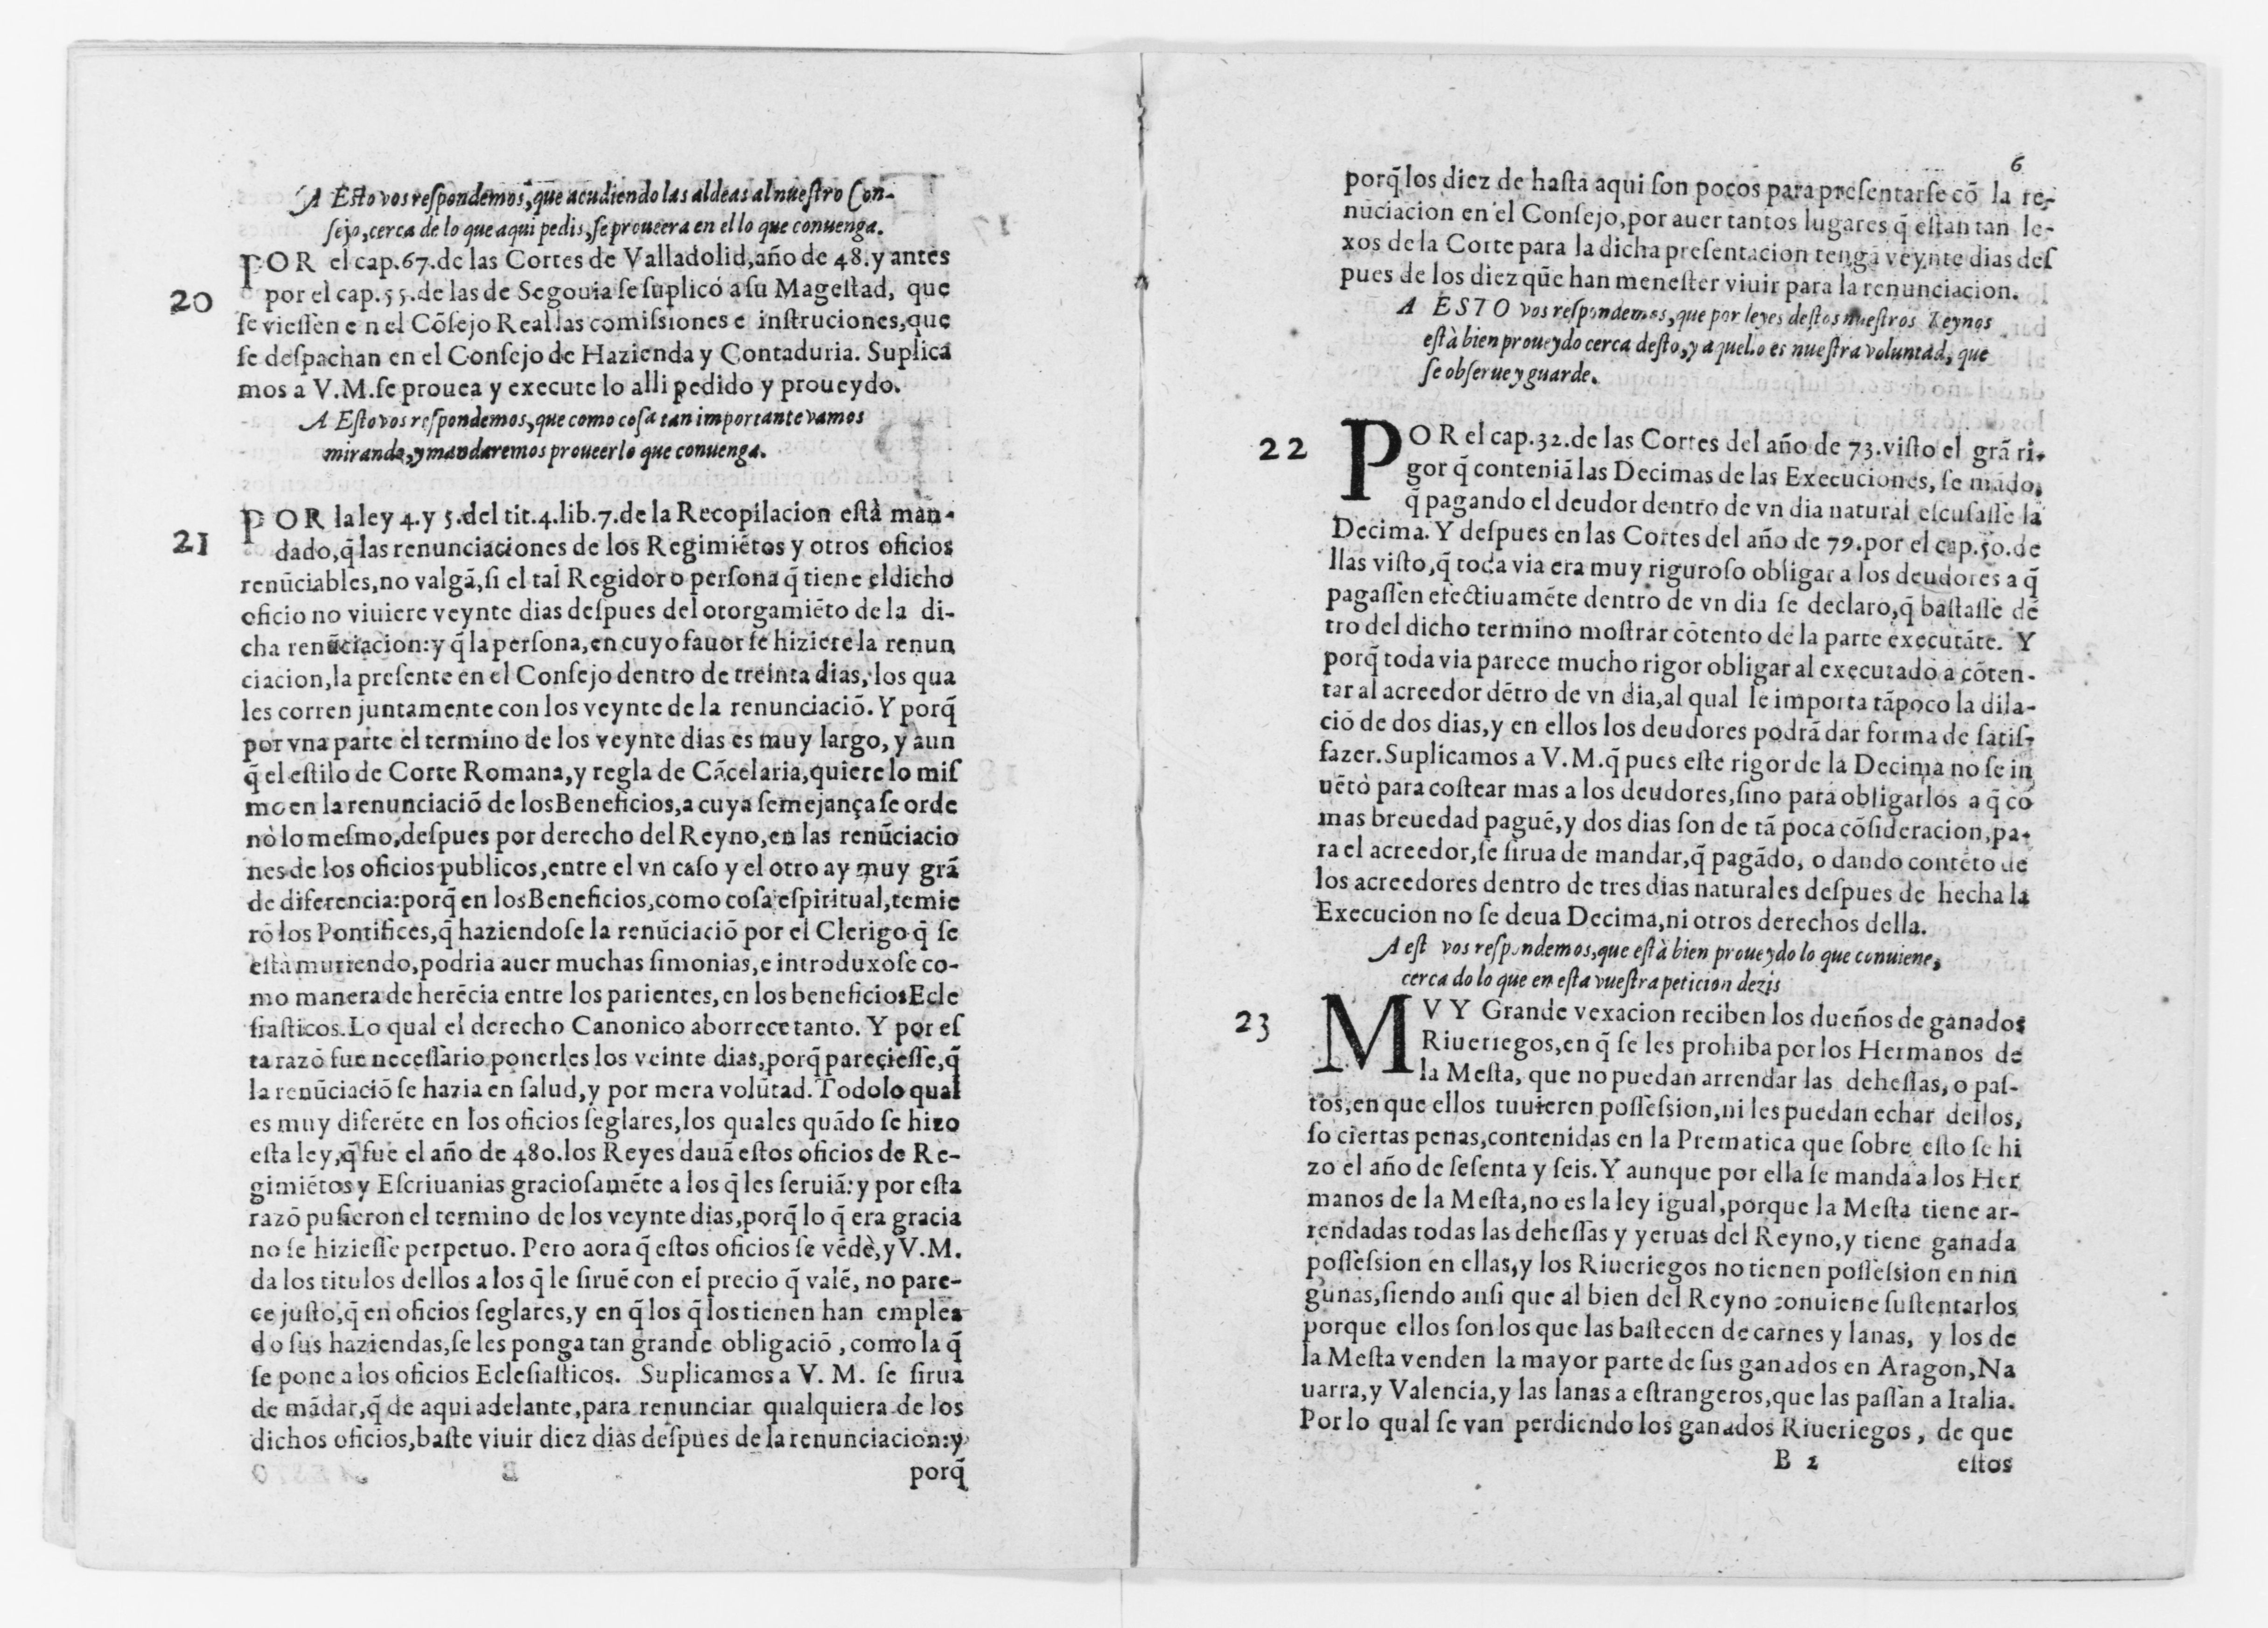 A Esto vos respondemos, que acudiendo las aldeas al nuestro Con-
sejo, cerca de lo que aqui pedis, se proueera en el lo que conuenga.
20
POR el cap.67.de las Cortes de Valladolid,año de 48.y antes
por el cap.55.de las de Segouia se suplicó a su Magestad, que
se viessen en el Cõsejo Real las comissiones e instruciones,que
se despachan en el Consejo de Hazienda y Contaduria. Suplica
mos a V.M.se prouea y execute lo alli pedido y proueydo.
A Esto vos respondemos, que como cosa tan importante vamos
mirando, y mandaremos proueer lo que conuenga.
21
POR la ley 4.y 5.del tit.4.lib.7.de la Recopilacion està man-
dado,q̃ las renunciaciones de los Regimiẽtos y otros oficios
renũciables,no valgã,si el tal Regidor o persona q̃ tiene el dicho
oficio no viuiere veynte dias despues del otorgamiẽto de la di-
cha renũciacion:y q̃ la persona,en cuyo fauor se hiziere la renun
ciacion,la presente en el Consejo dentro de treinta dias, los qua
les corren juntamente con los veynte de la renunciaciõ. Y porq̃
por vna parte el termino de los veynte dias es muy largo, y aun
q̃ el estilo de Corte Romana,y regla de Cãcelaria,quiere lo mis
mo en la renunciaciõ de los Beneficios,a cuya semejança se orde
nò lo mesmo,despues por derecho del Reyno,en las renũciacio
nes de los oficios publicos,entre el vn caso y el otro ay muy grã
de diferencia:porq̃ en los Beneficios,como cosa espiritual,temie
rõ los Pontifices,q̃ haziendose la renũciaciõ por el Clerigo q̃ se
està muriendo,podria auer muchas simonias,e introduxose co-
mo manera de herẽcia entre los parientes, en los beneficios Ecle
siasticos. Lo qual el derecho Canonico aborrece tanto. Y por es
ta razõ fue necessario ponerles los veinte dias,porq̃ pareciesse,q̃
la renũciaciõ se hazia en salud,y por mera volũtad. Todo lo qual
es muy diferẽte en los oficios seglares,los quales quãdo se hizo
esta ley,q̃ fue el año de 480.los Reyes dauã estos oficios de Re-
gimiẽtos y Escriuanias graciosamẽte a los q̃ les seruiã: y por esta
razõ pusieron el termino de los veynte dias,porq̃ lo q̃ era gracia
no se hiziesse perpetuo. Pero aora q̃ estos oficios se vẽdẽ,y V.M.
da los titulos dellos a los q̃ le siruẽ con el precio q̃ valẽ, no pare-
ce justo,q̃ en oficios seglares,y en q̃ los q̃ los tienen han emplea
do sus haziendas,se les ponga tan grande obligaciõ, como la q̃
se pone a los oficios Eclesiasticos. Suplicamos a V. M. se sirua
de mãdar,q̃ de aqui adelante,para renunciar qualquiera de los
dichos oficios,baste viuir diez dias despues de la renunciacion:y
porq̃
6
porq̃ los diez de hasta aqui son pocos para presentarse cõ la re-
nũciacion en el Consejo,por auer tantos lugares q̃ estan tan le-
xos de la Corte para la dicha presentacion tengã veynte dias des
pues de los diez que han menester viuir para la renunciacion.
A ESTO vos respondemos, que por leyes destos nuestros Reynos
està bien proueydo cerca desto, y aquello es nuestra voluntad, que
se obserue y guarde.
22
POR el cap.32.de las Cortes del año de 73.visto el grã ri-
gor q̃ conteniã las Decimas de las Execuciones, se mãdo,
q̃ pagando el deudor dentro de vn dia natural escusasse la
Decima. Y despues en las Cortes del año de 79.por el cap.50.de
llas visto,q̃ toda via era muy riguroso obligar a los deudores a q̃
pagassen efectiuamẽte dentro de vn dia se declaro,q̃ bastasse dẽ
tro del dicho termino mostrar cõtento de la parte executãte. Y
porq̃ toda via parece mucho rigor obligar al executado a cõten-
tar al acreedor dẽtro de vn dia,al qual le importa tãpoco la dila-
ciõ de dos dias,y en ellos los deudores podrã dar forma de satis-
fazer. Suplicamos a V.M.q̃ pues este rigor de la Decima no se in
uẽtò para costear mas a los deudores,sino para obligarlos a q̃ cõ
mas breuedad paguẽ,y dos dias son de tã poca cõsideracion,pa-
ra el acreedor,se sirua de mandar,q̃ pagãdo, o dando contẽto de
los acreedores dentro de tres dias naturales despues de hecha la
Execucion no se deua Decima,ni otros derechos della.
A est vos respondemos, que està bien proueydo lo que conuiene,
cerca do lo que en esta vuestra peticion dezis
23
MVY Grande vexacion reciben los dueños de ganados
Riueriegos,en q̃ se les prohiba por los Hermanos de
la Mesta, que no puedan arrendar las dehessas, o pas-
tos,en que ellos tuuieren possession,ni les puedan echar dellos,
so ciertas penas,contenidas en la Prematica que sobre esto se hi
zo el año de sesenta y seis. Y aunque por ella se manda a los Her
manos de la Mesta,no es la ley igual,porque la Mesta tiene ar-
rendadas todas las dehessas y yeruas del Reyno,y tiene ganada
possession en ellas,y los Riueriegos no tienen possession en nin
gunas,siendo ansi que al bien del Reyno conuiene sustentarlos
porque ellos son los que las bastecen de carnes y lanas, y los de
la Mesta venden la mayor parte de sus ganados en Aragon,Na
uarra,y Valencia,y las lanas a estrangeros,que las passan a Italia.
Por lo qual se van perdiendo los ganados Riueriegos, de que
B 2
estos